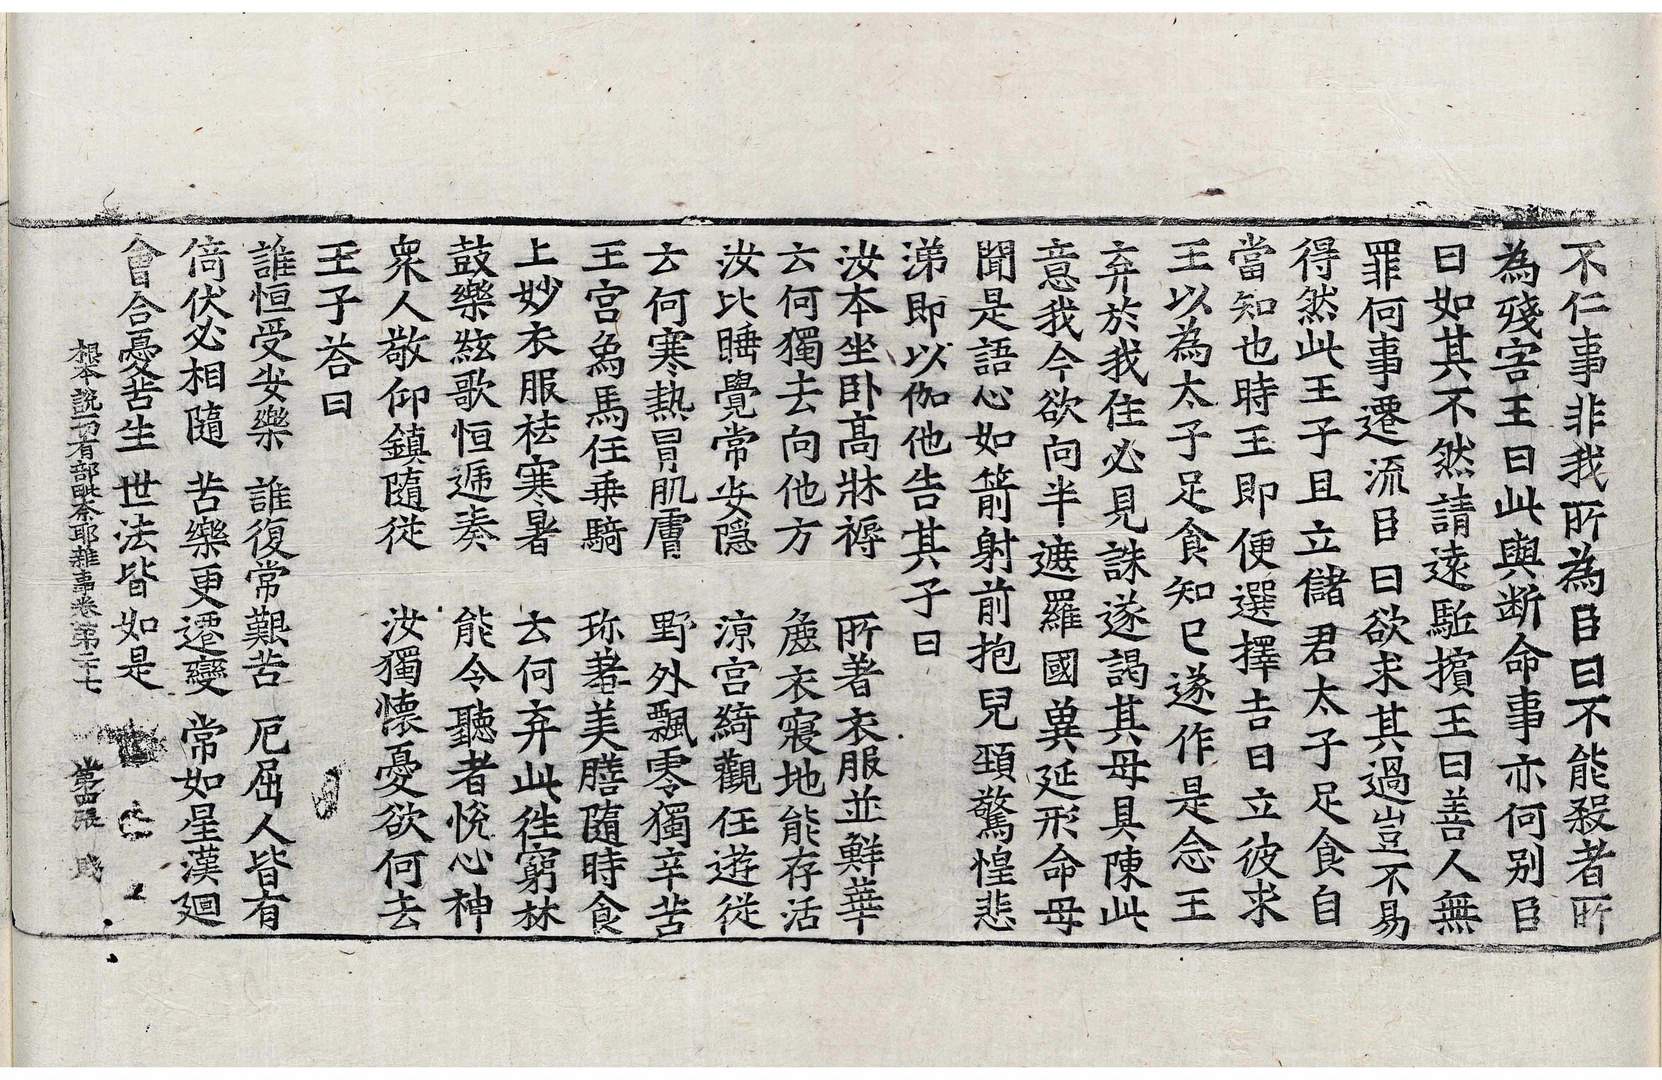 不仁事非我所為臣曰不能殺者所
為殘害王曰此與斷命事亦何別臣
曰如其不然請遠駈擯王曰善人無
罪何事遷流臣曰欲求其過豈不易
得然此王子且立儲君太子足食自
當知也時王即便選擇吉日立彼求
王以為太子足食知已遂作是念王
弃於我住必見誅遂謁其母具陳此
意我今欲向半遮羅國兾延形命母
聞是語心如箭射前抱兒頸驚惶悲
涕即以伽他告其子曰
汝本坐卧髙牀褥　所著衣服並鮮華
云何獨去向他方　麁衣寢地能存活
汝比睡覺常安隱　涼宮綺觀任遊從
云何寒熱冐肌膚　野外飄零獨辛苦
王宮象馬任乗騎　珎著美膳隨時食
上妙衣服袪寒暑　云何弃此徃窮林
鼓樂絃歌恒遞奏　能令聽者恱心神
衆人敬仰鎮隨從　汝獨懷憂欲何去
王子荅曰
誰恒受安樂　誰復常艱苦　厄屈人皆有
倚伏必相隨　苦樂更遷變　常如星漢廻
會合憂苦生　世法皆如是
根本說一切有部毗奈耶雜事卷第二十七　第四張